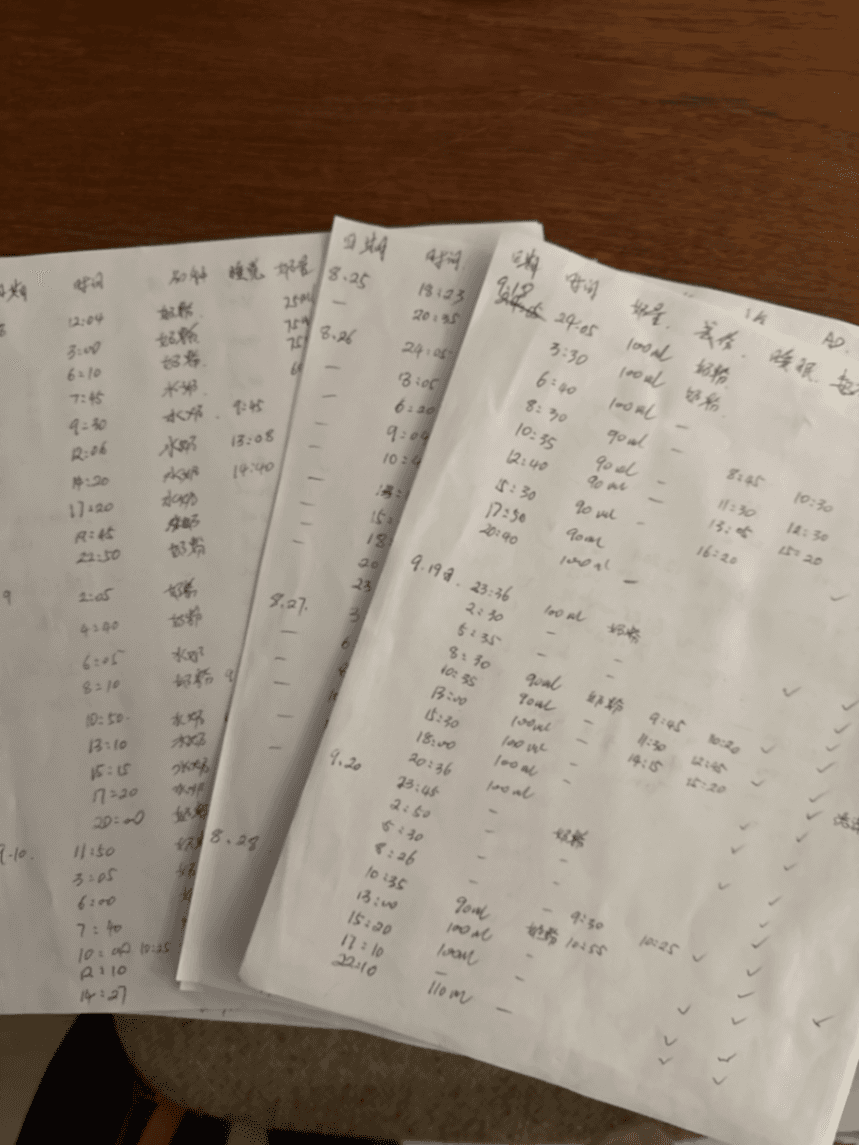 时间
12:04 奶粉
3:00 奶粉
6:10 奶粉
7:45 水奶
9:30 水奶 9:45
12:06 水奶 13:08
14:20 水奶 14:40
17:20 水奶
19:45
22:50 奶粉
9 2:05 奶粉
4:40 奶粉
6:05 水奶
8:10 奶粉 9
10:50 水奶
13:10 水奶
15:15 水奶
17:20 水奶
20:00 奶粉
9.10. 11:50
3:05
6:00
7:40
10:25
12:10
14:27
日期 时间
8.25 18:23
— 20:35
8.26 24:05
—
— 6:20
— 9:04
— 10:4
—
— 15:
— 18
20
23
8.27. 3
— 6
—
—
—
8.28
日期 时间 奶量 AD
9.18 24:05 100ml 奶粉
3:30 100ml 奶粉
6:40 100ml —
8:30 90ml —
10:35 90ml — 8:45 10:30
12:40 90ml — 11:30 12:30
15:30 90ml — 13:05 15:20
17:30 90ml 16:20
20:40 100ml —
9.19 23:36 100ml 奶粉
2:30 — —
5:35 — —
8:30 90ml 奶粉
10:35 90ml — 9:45 10:20
13:00 100ml — 11:30 12:45
15:30 100ml — 14:15 15:20
18:00 100ml —
9.20 20:36 100ml
23:45 — 奶粉
2:50 — —
5:30 — —
8:26 — —
10:35 90ml 奶粉 9:30 10:25
13:00 100ml — 10:55
15:20 100ml —
17:10 —
22:10 110ml —